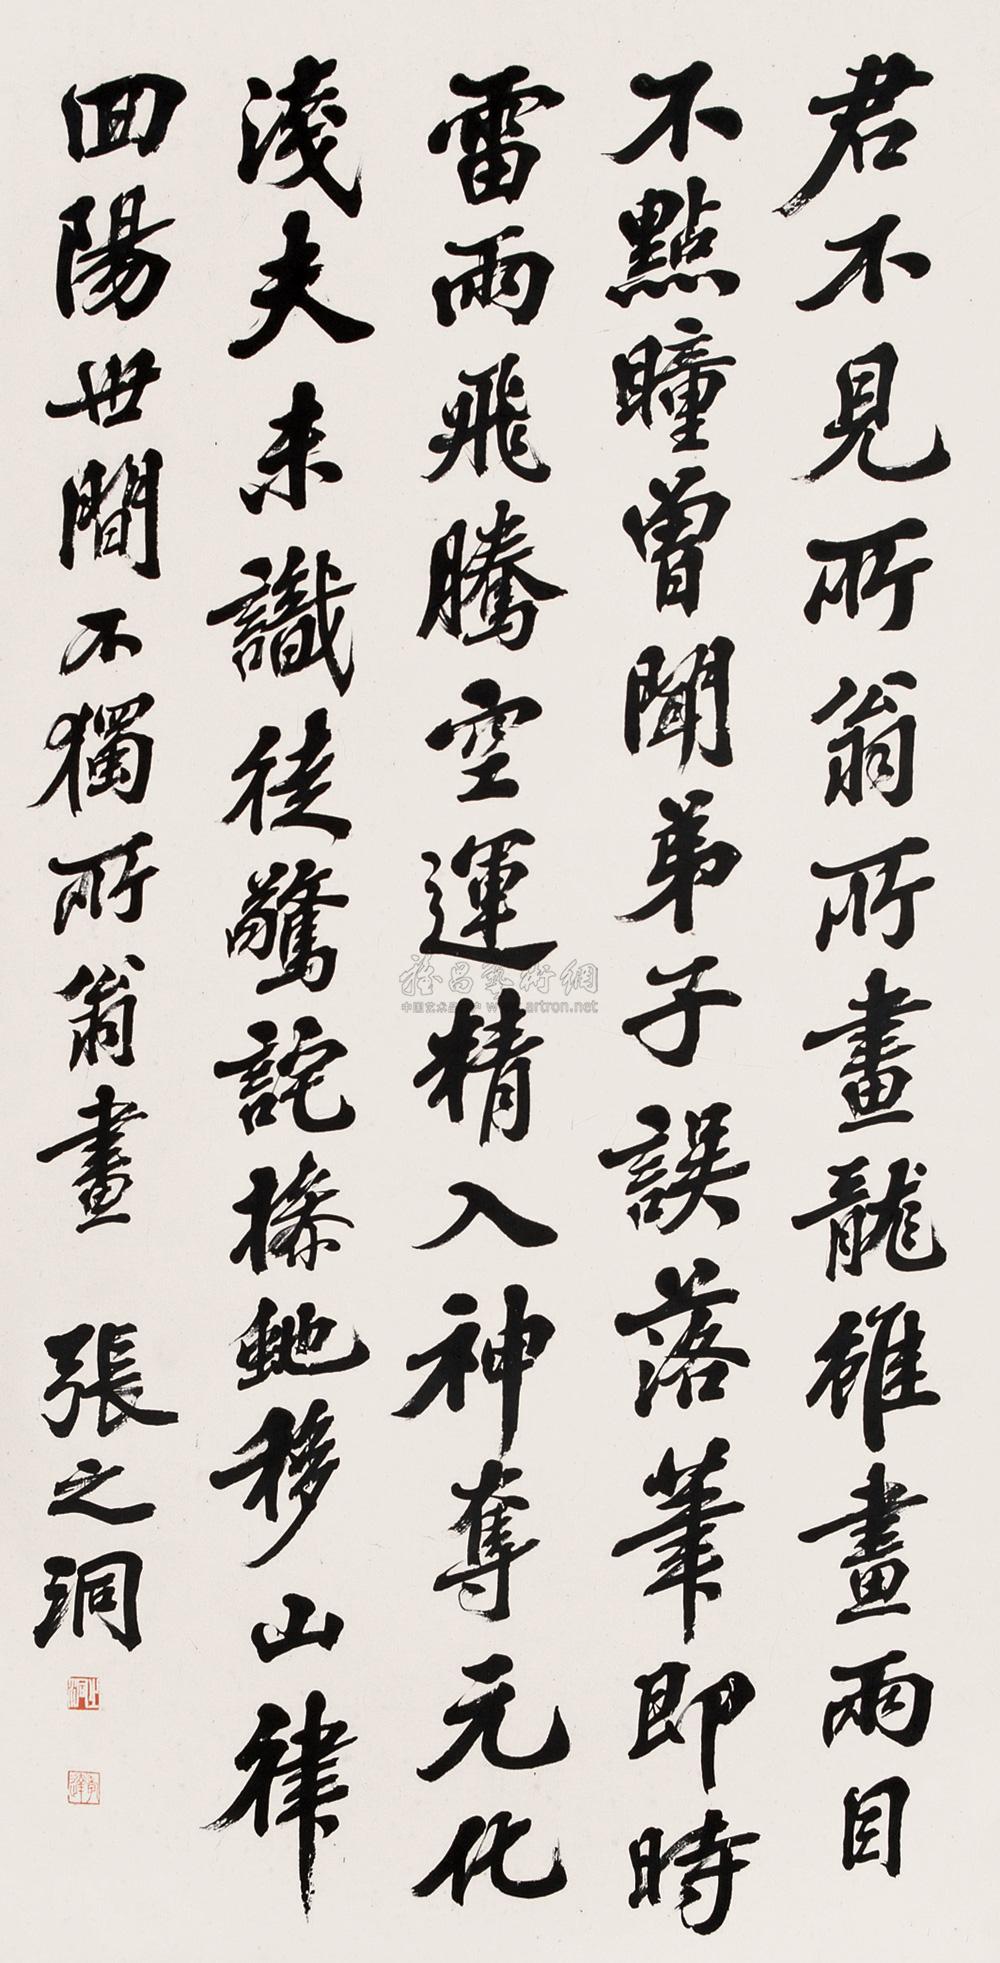 君不見所翁所畫龍雖畫兩目
不點瞳曾聞弟子誤落筆即時
雷雨飛騰空運精入神奪元化
淺夫未識徒驚詫操蛇移山律
回陽世間不獨所翁畫 張之洞
雅昌藝術網
www.artron.net